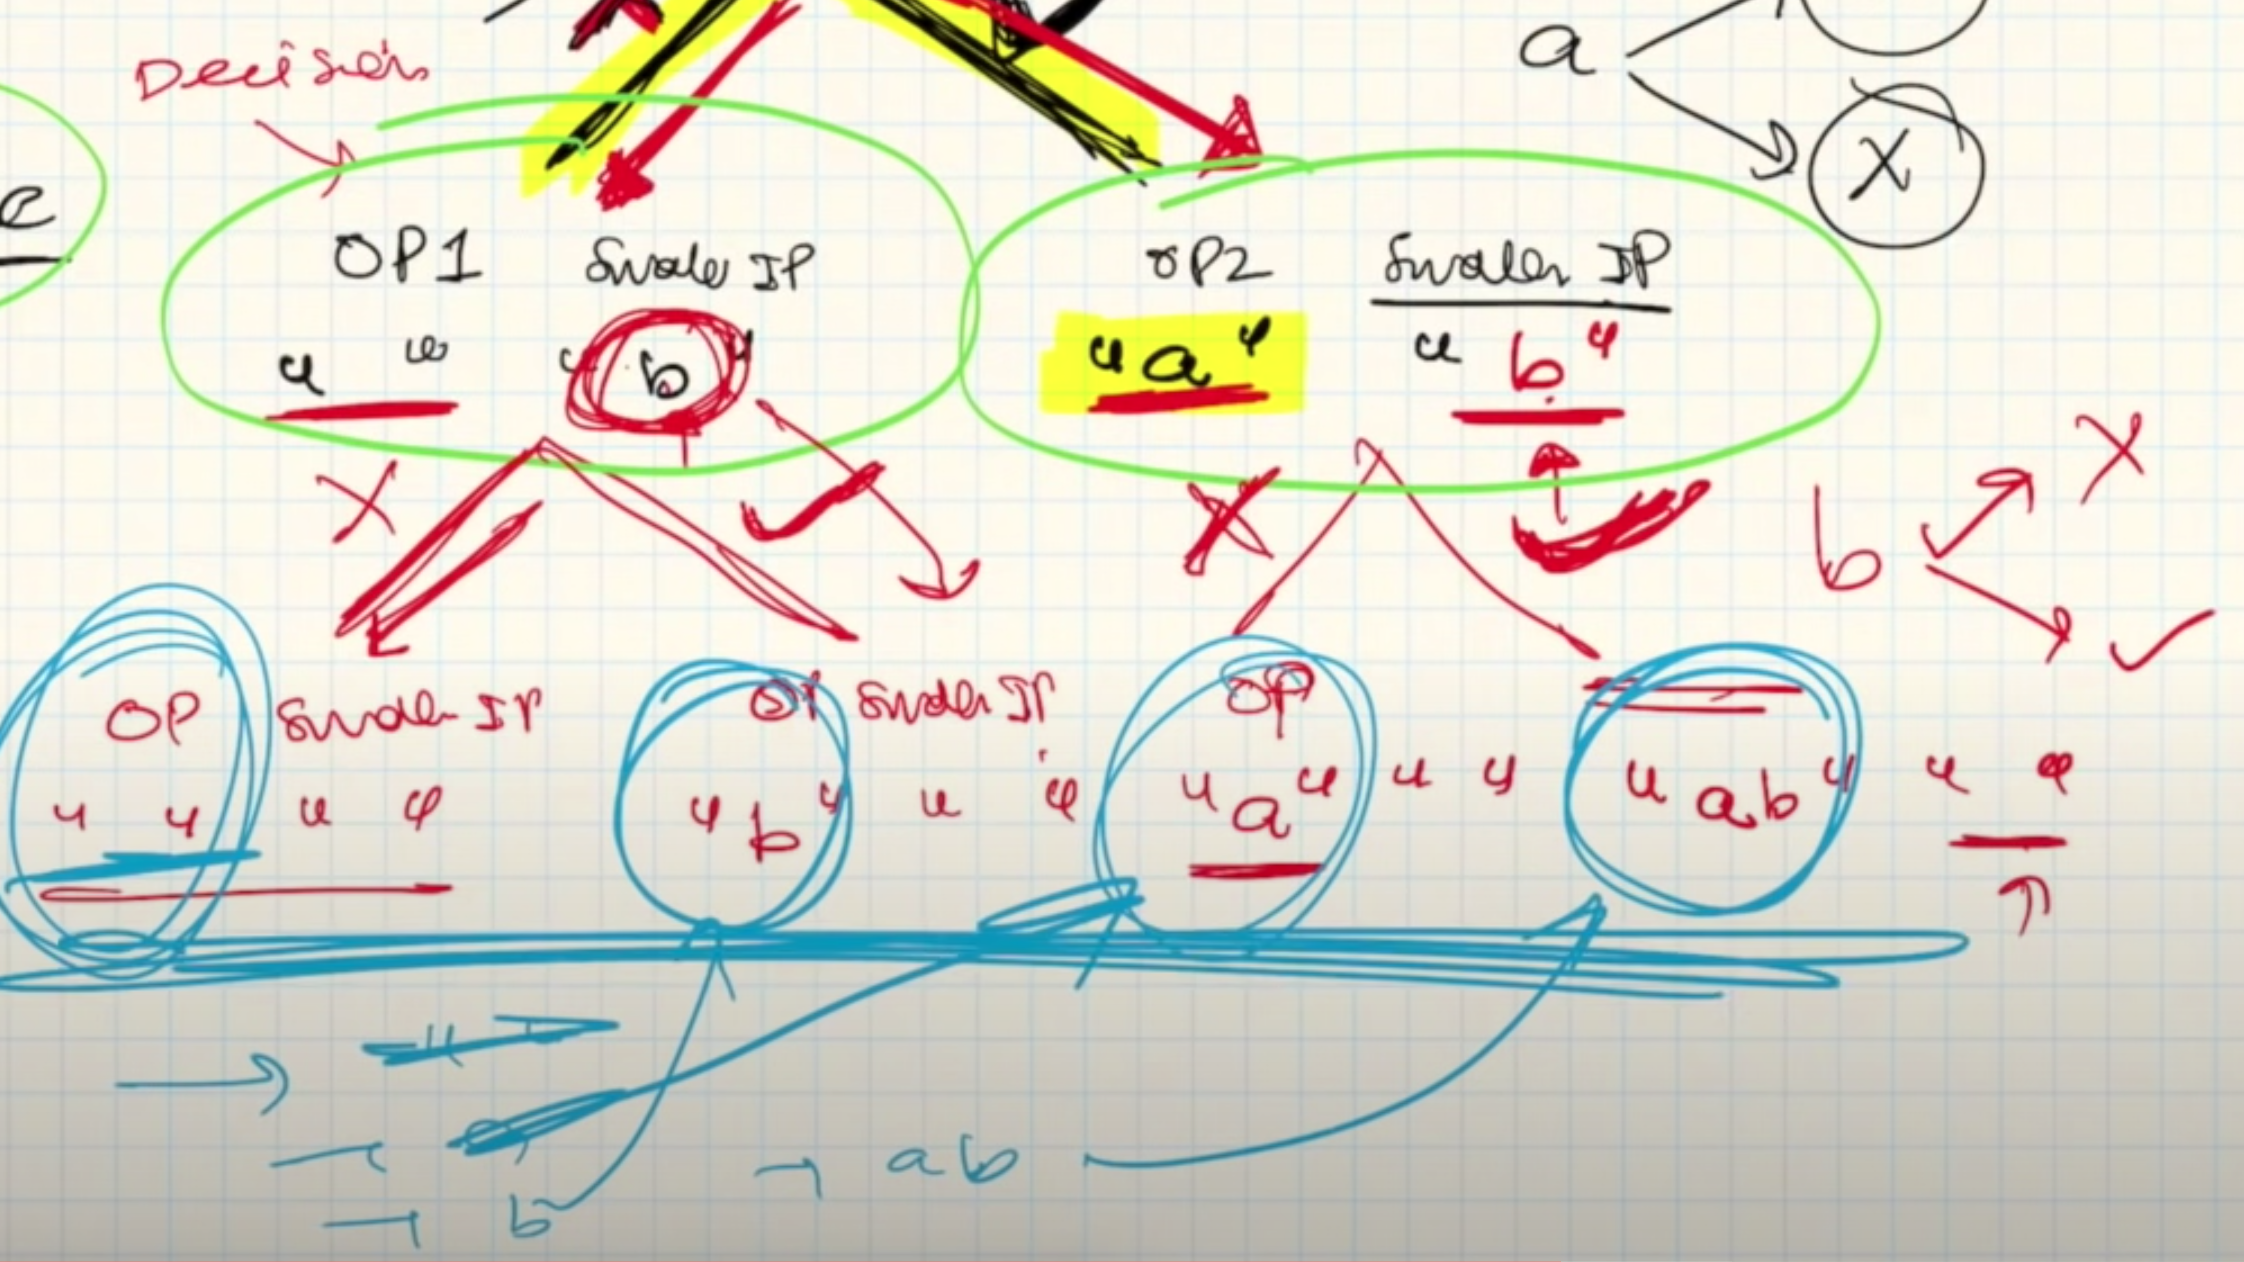 Decision
a
X
e
OP1 Smaller IP
OP2 Smaller IP
" " " b "
" a " " b "
X ✓ X ✓
b X
✓
OP Smaller IP
OP Smaller IP
OP
" " " "
" b " " "
" a " " "
" ab " " "
→ " "
→
→ b
→ ab